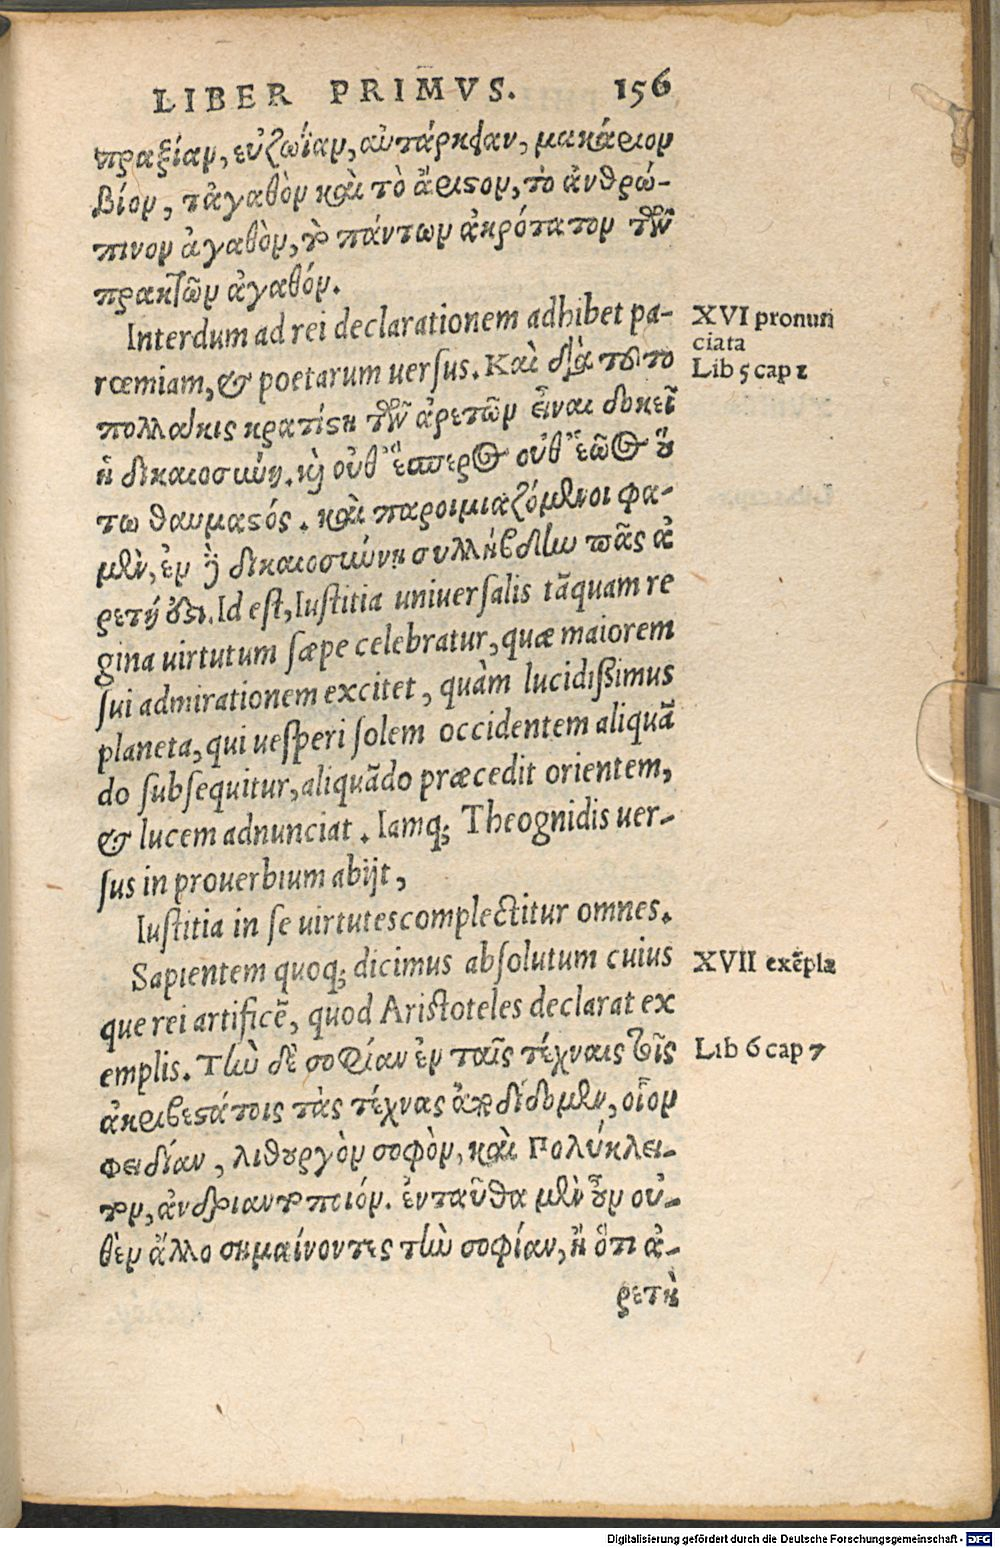 LIBER PRIMVS. 156
πραξίαν, εὐζωΐαν, αὐτάρκειαν, μακάριον
βίον, τἀγαθὸν καὶ τὸ ἄριστον, τὸ ἀνθρώ-
πινον ἀγαθὸν, τὸ πάντων ἀκρότατον τῶν
πρακτῶν ἀγαθόν.
Interdum ad rei declarationem adhibet pa-
rœmiam, & poetarum uersus. Καὶ διὰ τοῦτο
πολλάκις κρατίστη τῶν ἀρετῶν εἶναι δοκεῖ
ἡ δικαιοσύνη. καὶ οὐθ᾽ ἕσπερος οὐθ᾽ ἑῶος οὕ
τω θαυμαστός. καὶ παροιμιαζόμενοι φα-
μὲν, ἐν δὲ δικαιοσύνῃ συλλήβδην πᾶς ἀ
ρετή ᾽στι. Id est, Iustitia uniuersalis tãquam re
gina uirtutum sæpe celebratur, quæ maiorem
sui admirationem excitet, quàm lucidissimus
planeta, qui uesperi solem occidentem aliquã
do subsequitur, aliquãdo præcedit orientem,
& lucem adnunciat. Iamq; Theognidis uer-
sus in prouerbium abijt,
Iustitia in se uirtutes complectitur omnes.
Sapientem quoq; dicimus absolutum cuius
que rei artificẽ, quod Aristoteles declarat ex
emplis. Τὴν δὲ σοφίαν ἐν ταῖς τέχναις τοῖς
ἀκριβεστάτοις τὰς τέχνας ἀποδίδομεν, οἷον
Φειδίαν, λιθουργὸν σοφὸν, καὶ Πολύκλει-
τον, ἀνδριαντοποιόν. ἐνταῦθα μὲν οὖν οὐ-
θὲν ἄλλο σημαίνοντες τὴν σοφίαν, ἢ ὅτι ἀ-
ρετὴ
XVI pronun
ciata
Lib 5 cap 1
XVII exẽpla
Lib 6 cap 7
Digitalisierung gefördert durch die Deutsche Forschungsgemeinschaft - DFG